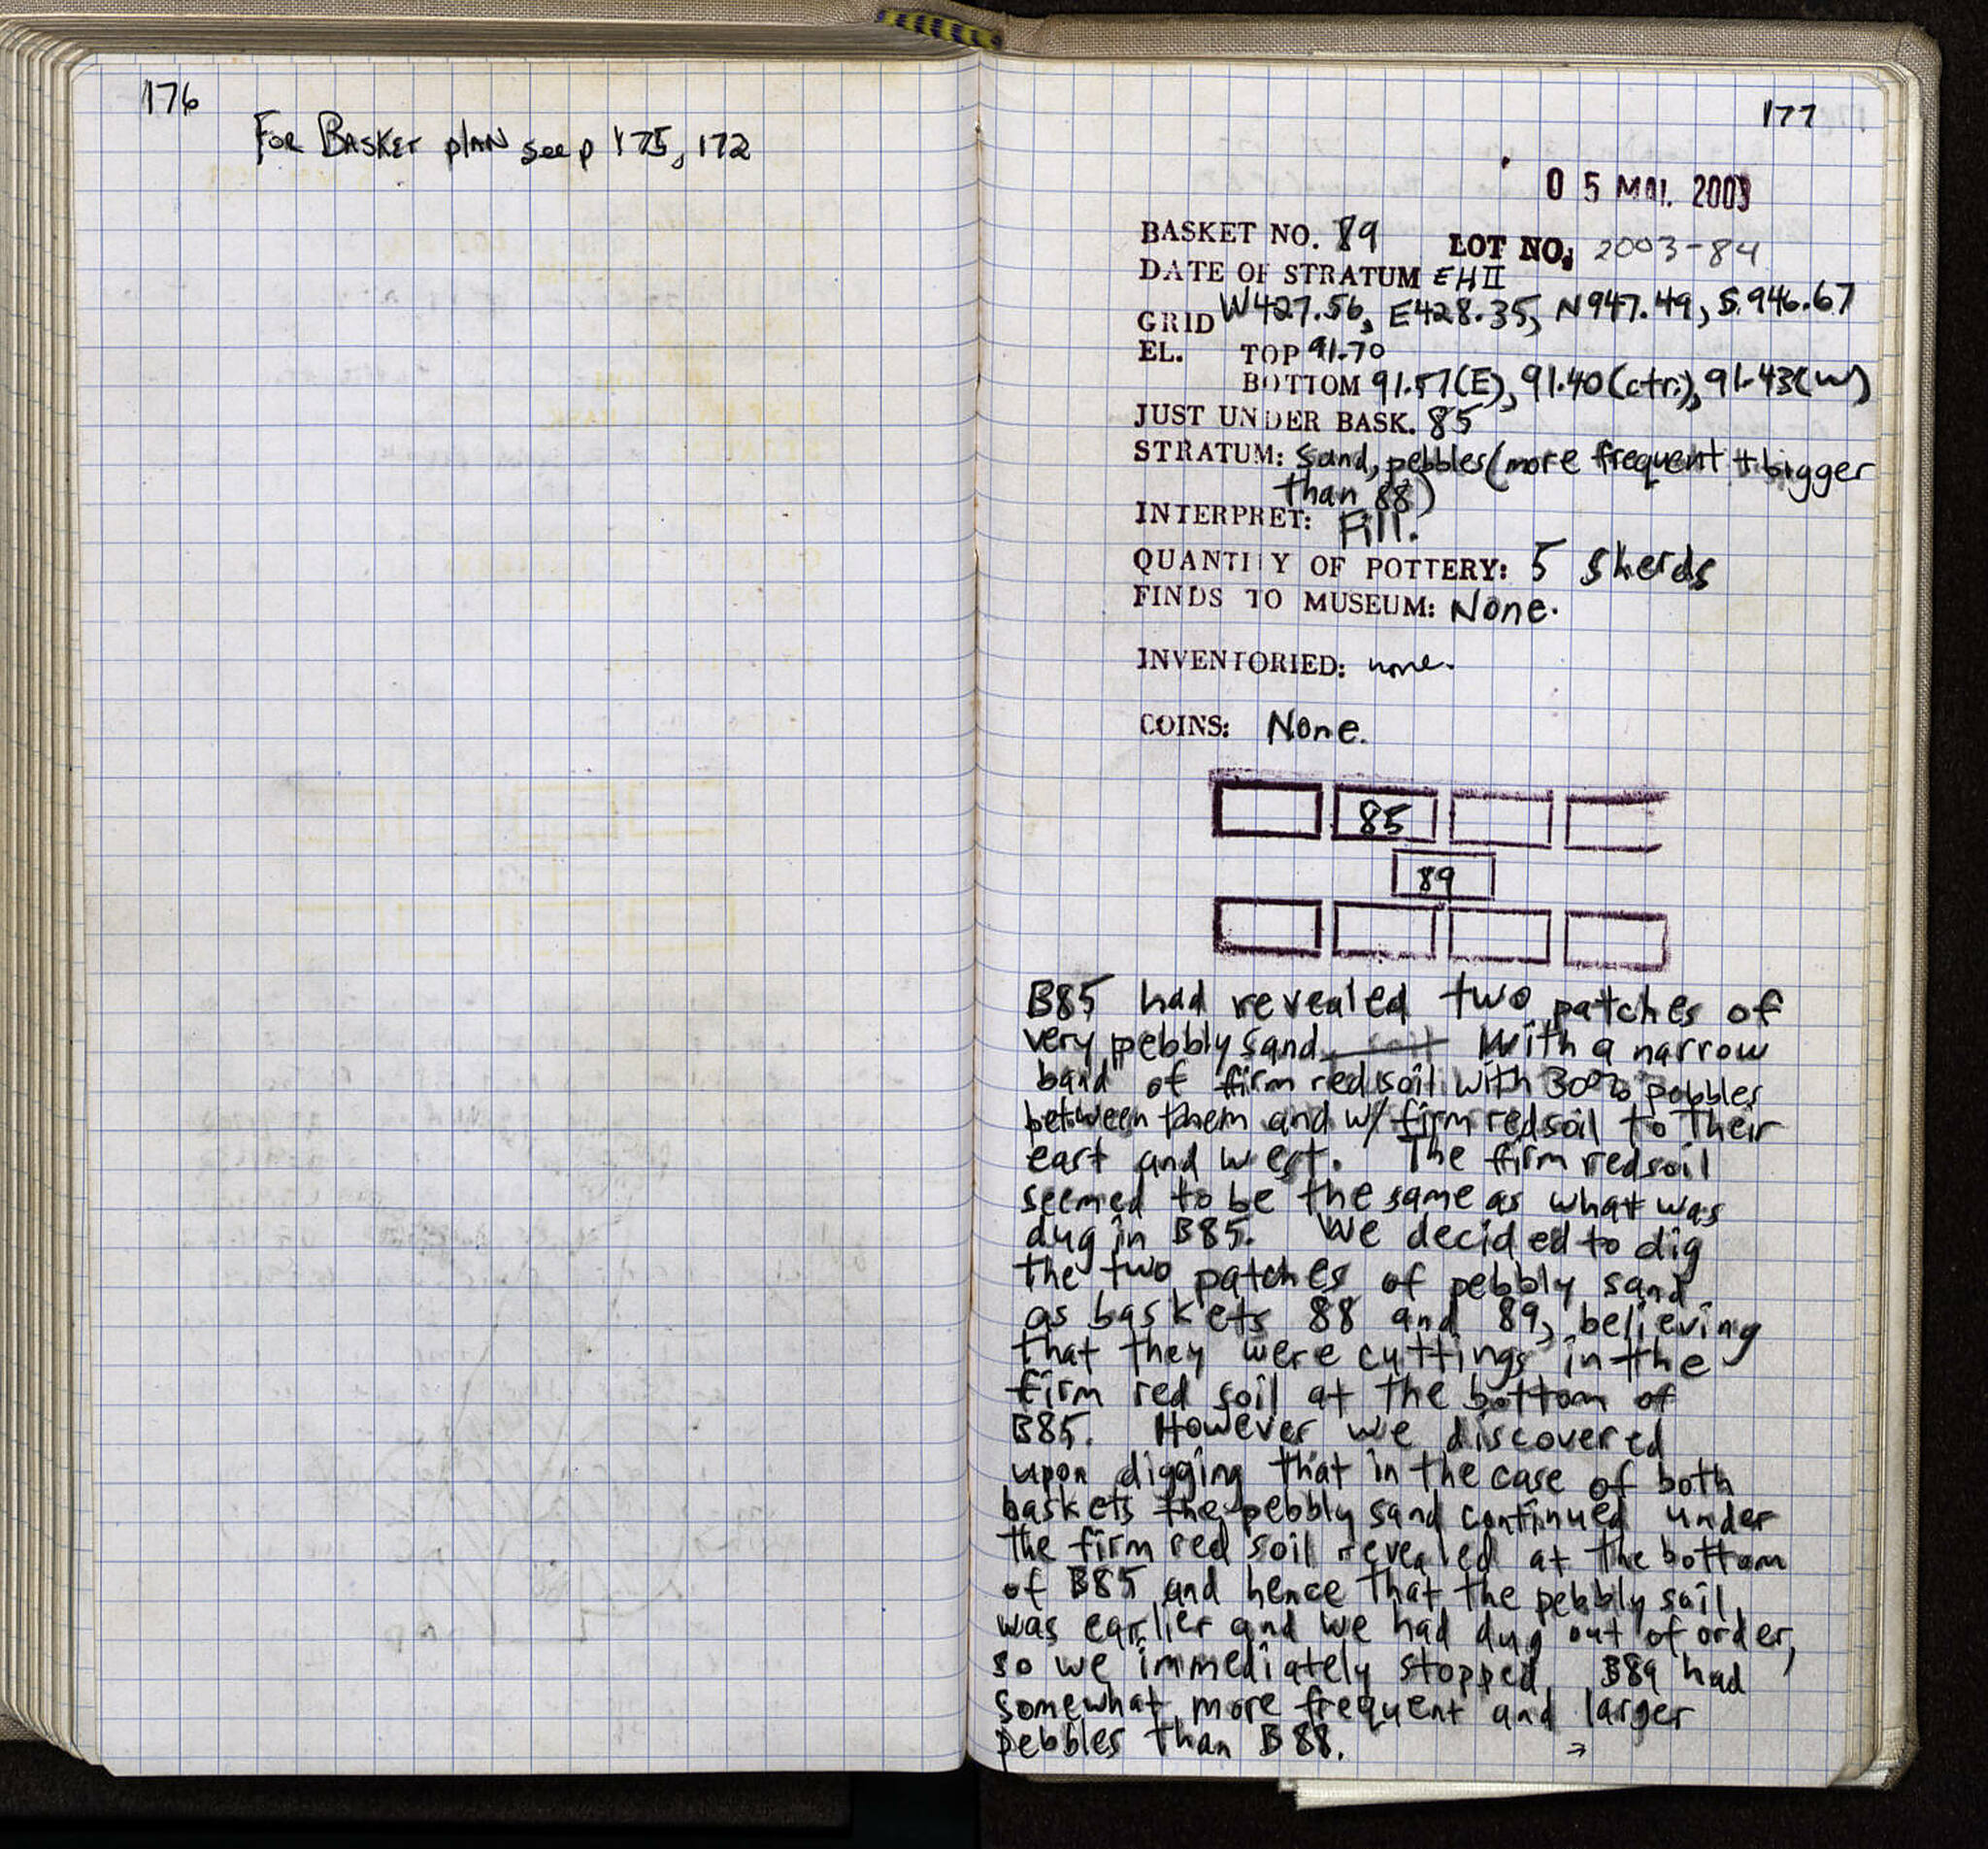 176
For Basket plan see p 175, 172
177
05 MAI. 2003
BASKET NO. 89 LOT NO: 2003-84
DATE OF STRATUM EHII
GRID W427.56, E428.35, N947.49, S.946.67
EL. TOP 91.70
BOTTOM 91.57(E), 91.40(ctr.), 91.43(W)
JUST UNDER BASK. 85
STRATUM: sand, pebbles (more frequent + bigger
than 88)
INTERPRET: Fill.
QUANTITY OF POTTERY: 5 sherds
FINDS TO MUSEUM: None.
INVENTORIED: none.
COINS: None.
85
89
B85 had revealed two patches of
very pebbly sand with a narrow
"band" of firm red soil with 30% pebbles
between them and w/ firm red soil to their
east and west. The firm red soil
seemed to be the same as what was
dug in B85. We decided to dig
the two patches of pebbly sand
as baskets 88 and 89, believing
that they were cuttings in the
firm red soil at the bottom of
B85. However we discovered
upon digging that in the case of both
baskets the pebbly sand continued under
the firm red soil revealed at the bottom
of B85 and hence that the pebbly soil
was earlier and we had dug out of order,
so we immediately stopped. B89 had
somewhat more frequent and larger
pebbles than B88. →